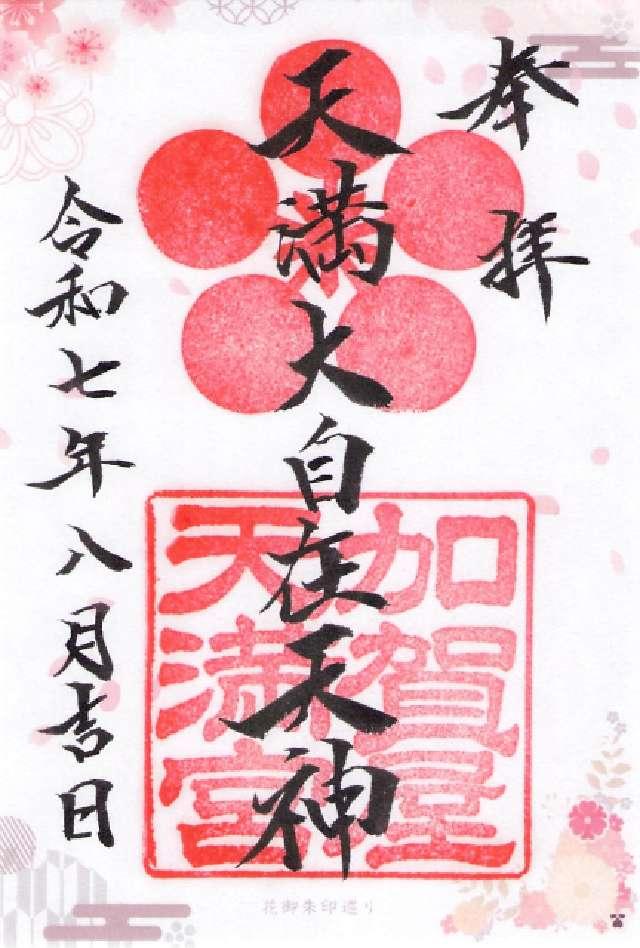 奉拝
天満大自在天神
令和七年八月吉日
加賀屋
天満宮
花御朱印巡り